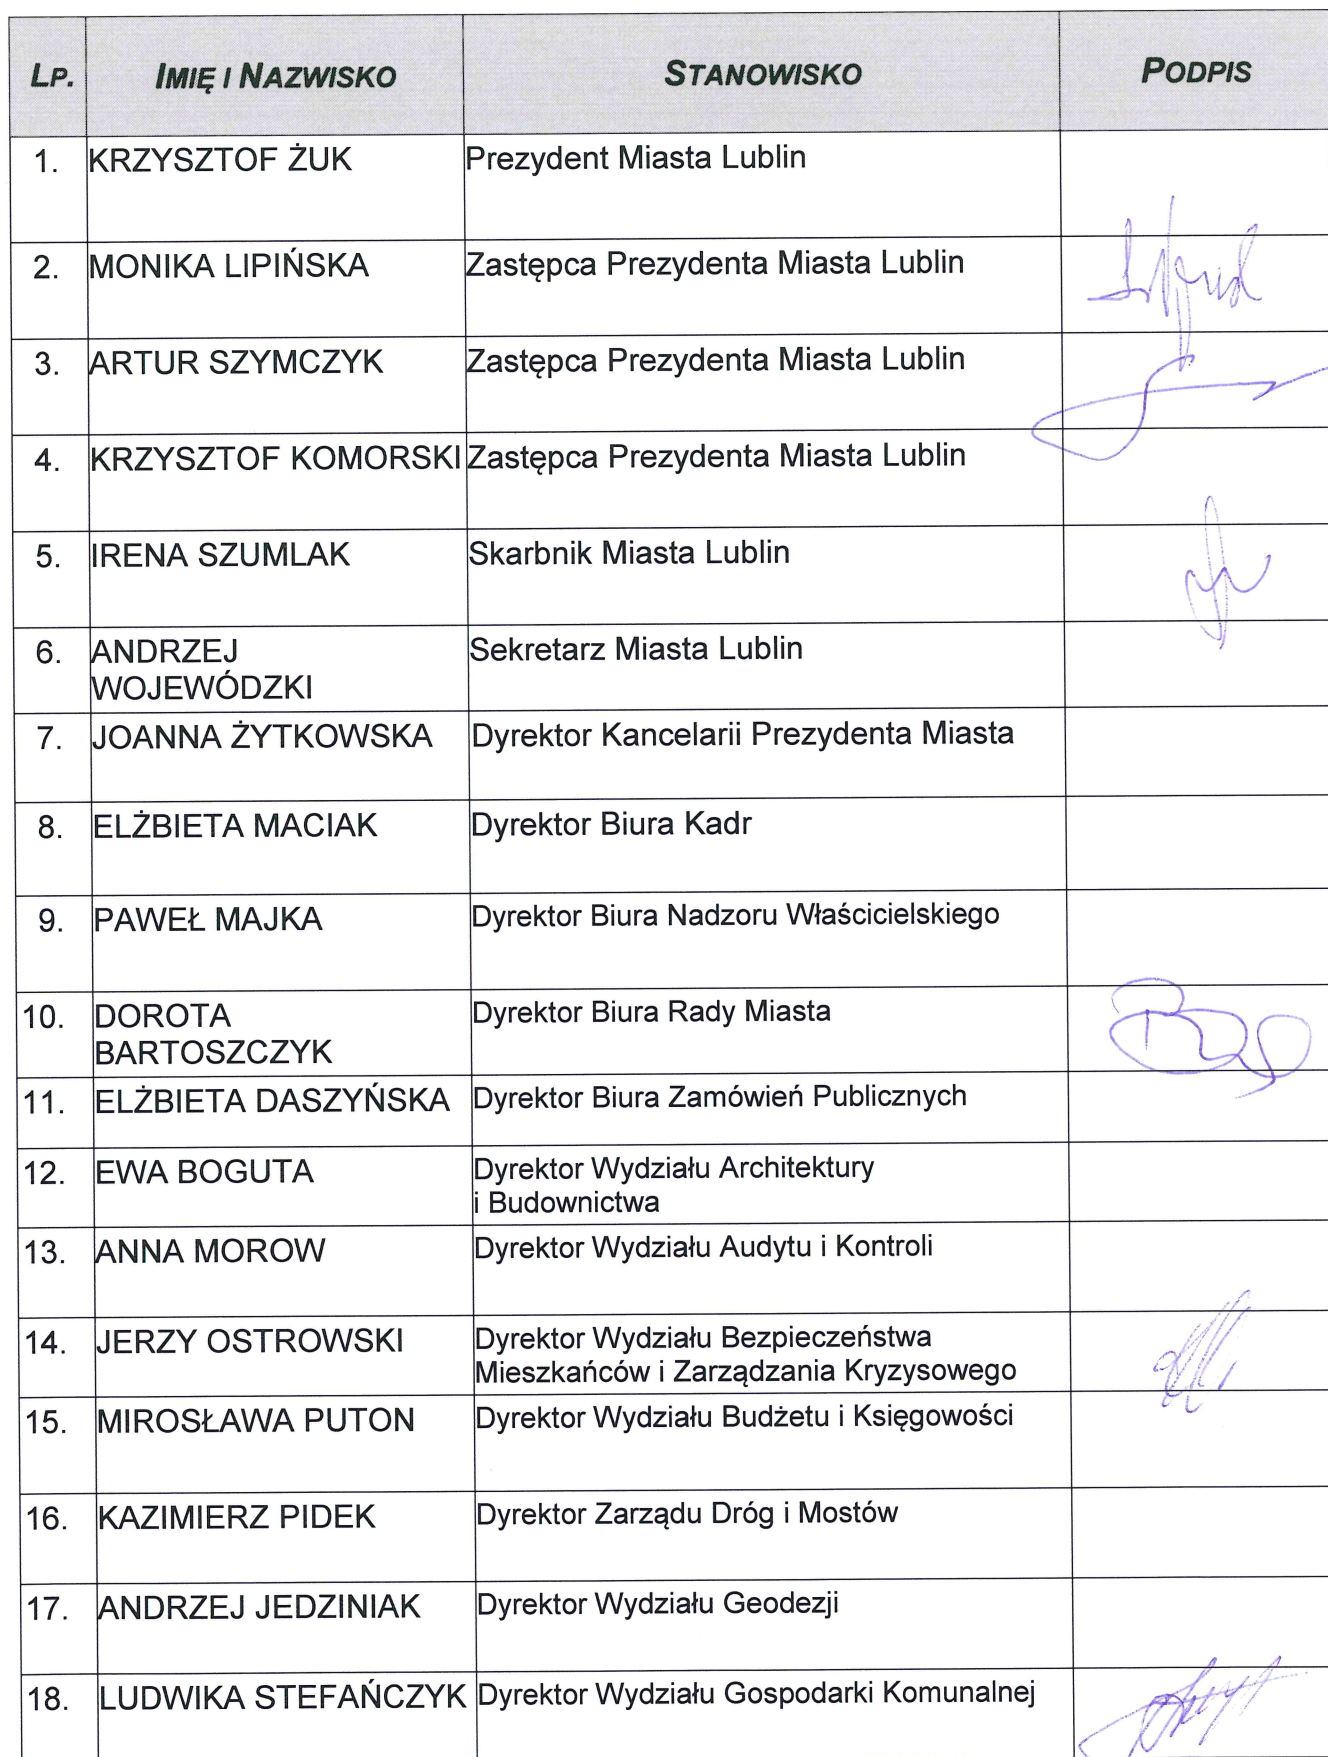 LP. IMIĘ I NAZWISKO STANOWISKO PODPIS
1. KRZYSZTOF ŻUK Prezydent Miasta Lublin
2. MONIKA LIPIŃSKA Zastępca Prezydenta Miasta Lublin
3. ARTUR SZYMCZYK Zastępca Prezydenta Miasta Lublin
4. KRZYSZTOF KOMORSKI Zastępca Prezydenta Miasta Lublin
5. IRENA SZUMLAK Skarbnik Miasta Lublin
6. ANDRZEJ Sekretarz Miasta Lublin
WOJEWÓDZKI
7. JOANNA ŻYTKOWSKA Dyrektor Kancelarii Prezydenta Miasta
8. ELŻBIETA MACIAK Dyrektor Biura Kadr
9. PAWEŁ MAJKA Dyrektor Biura Nadzoru Właścicielskiego
10. DOROTA Dyrektor Biura Rady Miasta
BARTOSZCZYK
11. ELŻBIETA DASZYŃSKA Dyrektor Biura Zamówień Publicznych
12. EWA BOGUTA Dyrektor Wydziału Architektury
i Budownictwa
13. ANNA MOROW Dyrektor Wydziału Audytu i Kontroli
14. JERZY OSTROWSKI Dyrektor Wydziału Bezpieczeństwa
Mieszkańców i Zarządzania Kryzysowego
15. MIROSŁAWA PUTON Dyrektor Wydziału Budżetu i Księgowości
16. KAZIMIERZ PIDEK Dyrektor Zarządu Dróg i Mostów
17. ANDRZEJ JEDZINIAK Dyrektor Wydziału Geodezji
18. LUDWIKA STEFAŃCZYK Dyrektor Wydziału Gospodarki Komunalnej